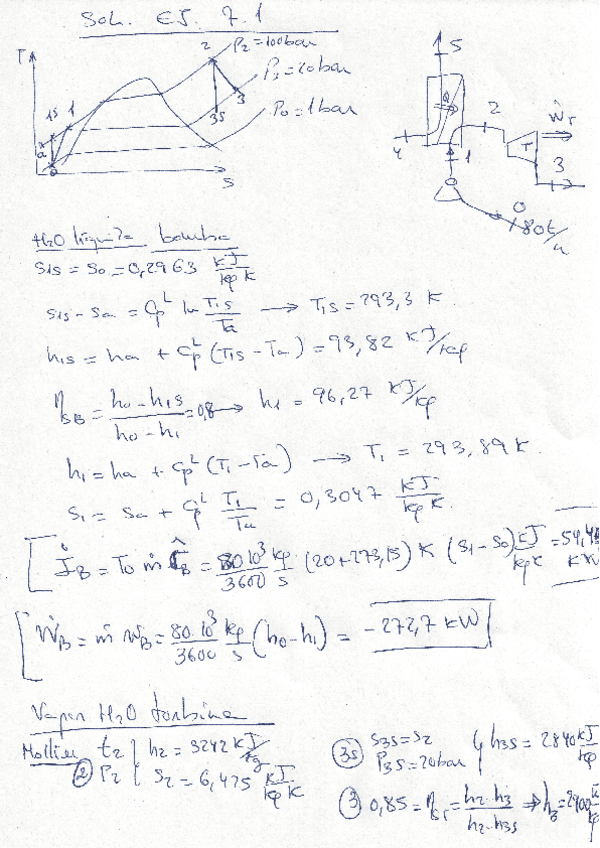 Sol. EJ. 7.1
T
2
P2 = 100bar
P3 = 20bar
P0 = 1bar
1s 1
a
3s 3
s
5
Q
4
1
2
T
ẆT
3
0
80t/h
H2O líquida bomba
s1s = s0 = 0,2963 kJ/kg K
s1s - sa = Cp^L ln T1s/Ta → T1s = 293,3 K.
h1s = ha + Cp^L (T1s - Ta) = 93,82 kJ/kg
ηSB = (h0 - h1s)/(h0 - h1) = 0,8 → h1 = 96,27 kJ/kg
h1 = ha + Cp^L (T1 - Ta) → T1 = 293,89 K.
s1 = sa + Cp^L T1/Ta = 0,3047 kJ/kg K
İB = T0 ṁ = 80·10^3/3600 kg/s (20+273,15) K (s1 - s0) kJ/kg K = 54,4
kW
ẆB = ṁ wB = 80·10^3/3600 kg/s (h0 - h1) = -272,7 kW
Vapor H2O turbina
Mollier t2 { h2 = 3242 kJ/kg
② P2 { s2 = 6,475 kJ/kg K
3s s3s = s2
P3s = 20bar } h3s = 2840 kJ/kg
③ 0,85 = ηST = (h2 - h3)/(h2 - h3s) ⇒ h3 = 2900 kJ/kg